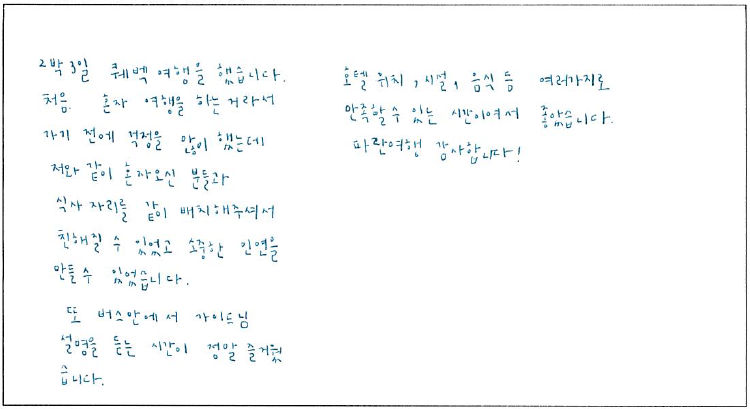 2박3일 퀘벡 여행을 했습니다.
처음. 혼자 여행을 하는거라서
가기 전에 걱정을 많이 했는데
저와 같이 혼자오신 분들과
식사 자리를 같이 배치해주셔서
친해질 수 있었고 소중한 인연을
만들수 있었습니다.
또 버스안에서 가이드님
설명을 듣는 시간이 정말 즐거웠
습니다.
호텔 위치, 시설, 음식 등 여러가지로
만족할수 있는 시간이여서 좋았습니다.
파란여행 감사합니다!